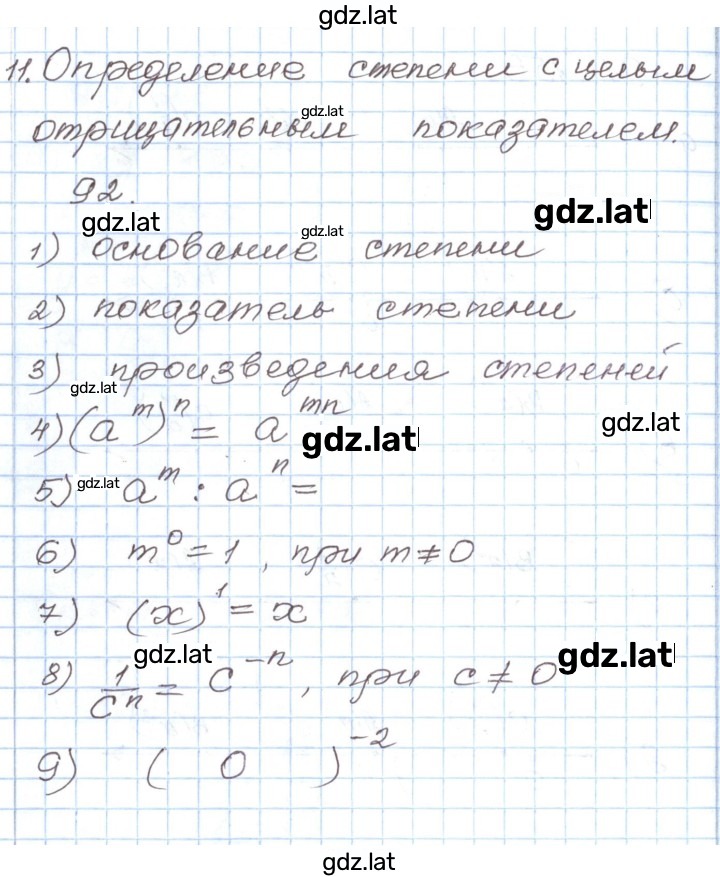 gdz.lat
11. Определение степени с целым
gdz.lat
отрицательным показателем.
92.
gdz.lat
gdz.lat
gdz.lat
1) основание степени
2) показатель степени
3) произведения степеней
gdz.lat
4) (a^m)^n = a^mn
gdz.lat
gdz.lat
5) a^m : a^n =
gdz.lat
6) m^0 = 1, при m ≠ 0
7) (x)^1 = x
gdz.lat
gdz.lat
8) 1/c^n = c^-n, при c ≠ 0
9) ( 0 )^-2
gdz.lat